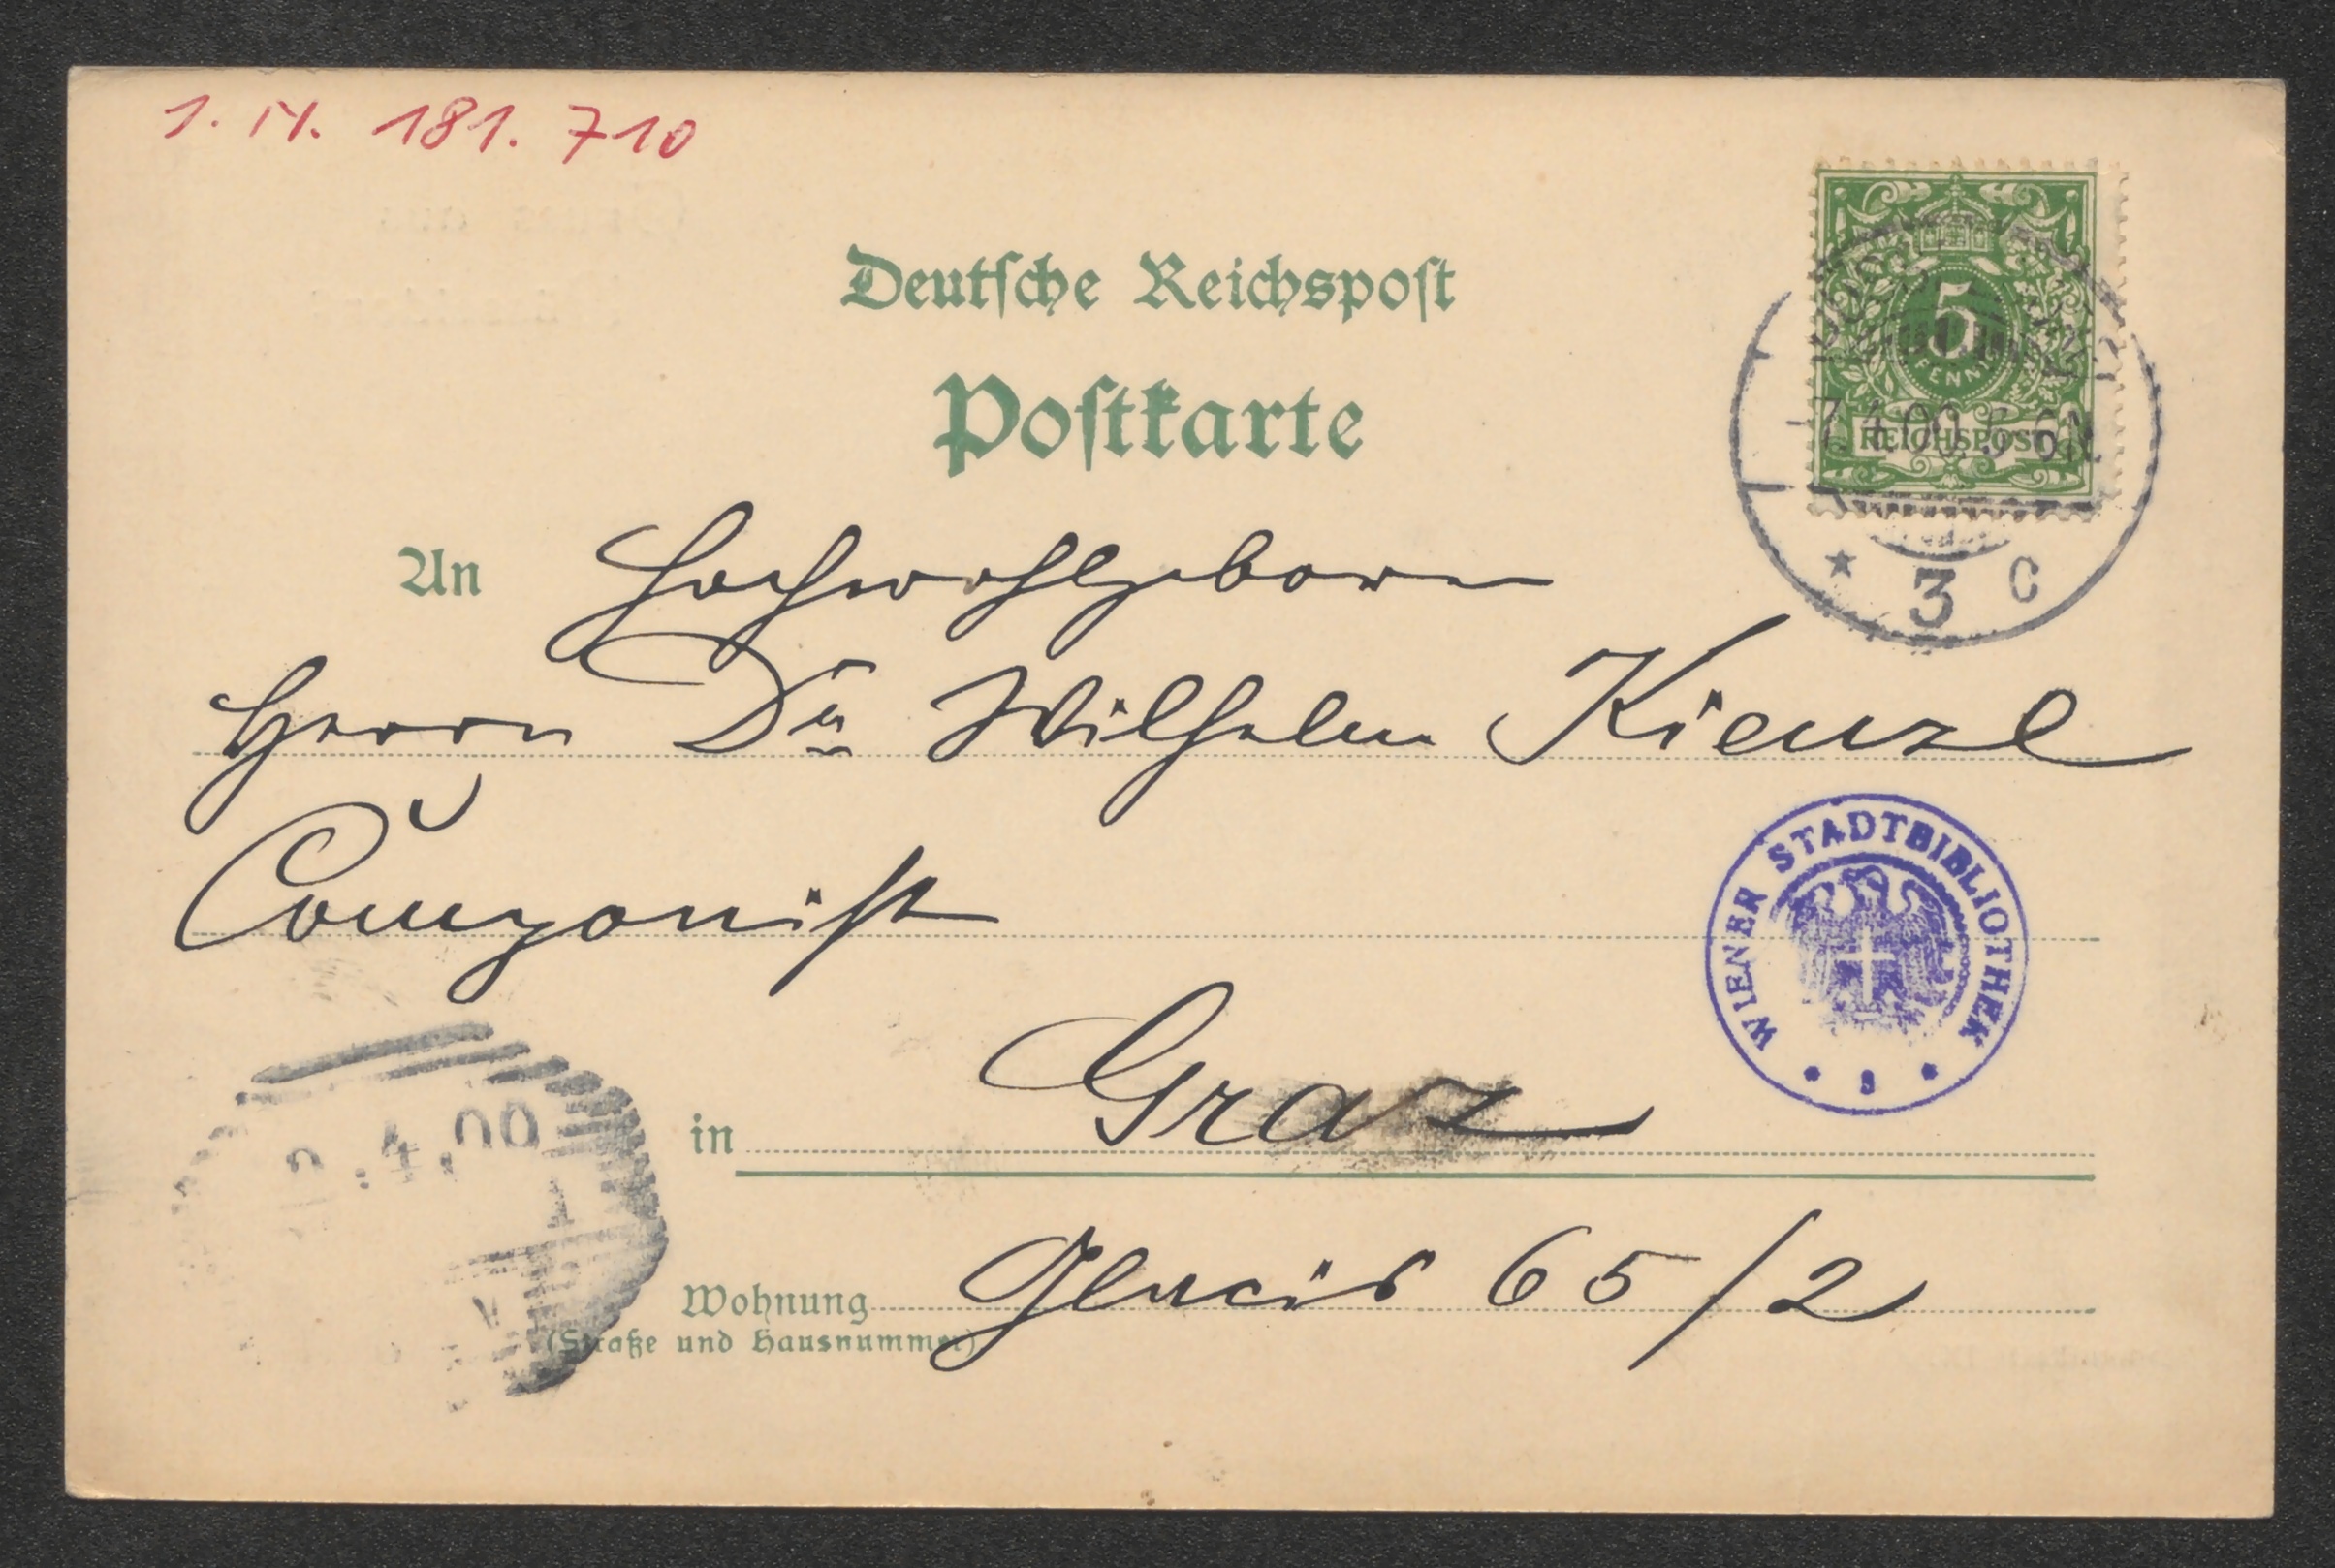 1. N. 181. 710
Deutsche Reichspost
Postkarte
5
PFENNIG
REICHSPOST
-7.4.00. 5-6N.
* 3 C
An Hochwohlgeboren
Herrn Dr. Wilhelm Kienzl
Componist
WIENER STADTBIBLIOTHEK
in Graz
.4.00
Wohnung Glacis 65/2
(Straße und Hausnummer)